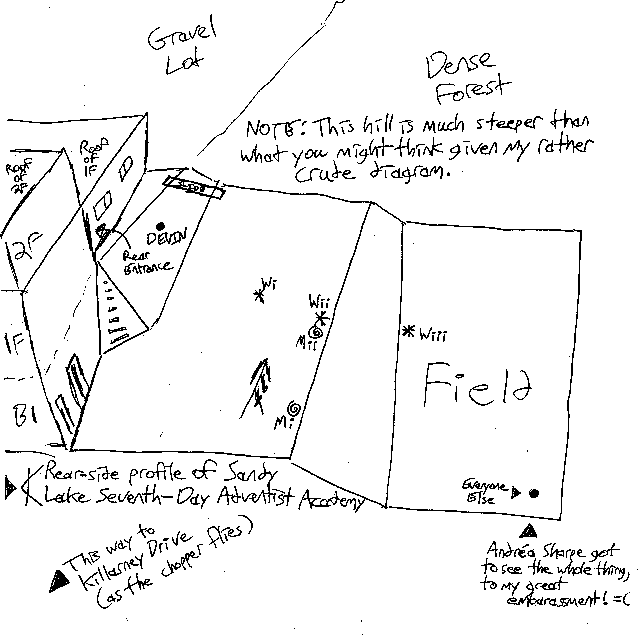 Gravel
Lot
Dense
Forest
NOTE: This hill is much steeper than
what you might think given my rather
crude diagram.
Roof
of
2F
Roof
of
1F
2F
1F
B1
DEVIN
Rear
Entrance
Wi
Wii
Mii
Mi
Wiii
Field
Everyone
Else
Rear-side profile of Sandy
Lake Seventh-Day Adventist Academy
This way to
Killarney Drive
(as the chopper flies)
Andréa Sharpe got
to see the whole thing,
to my great
embarassment! =(